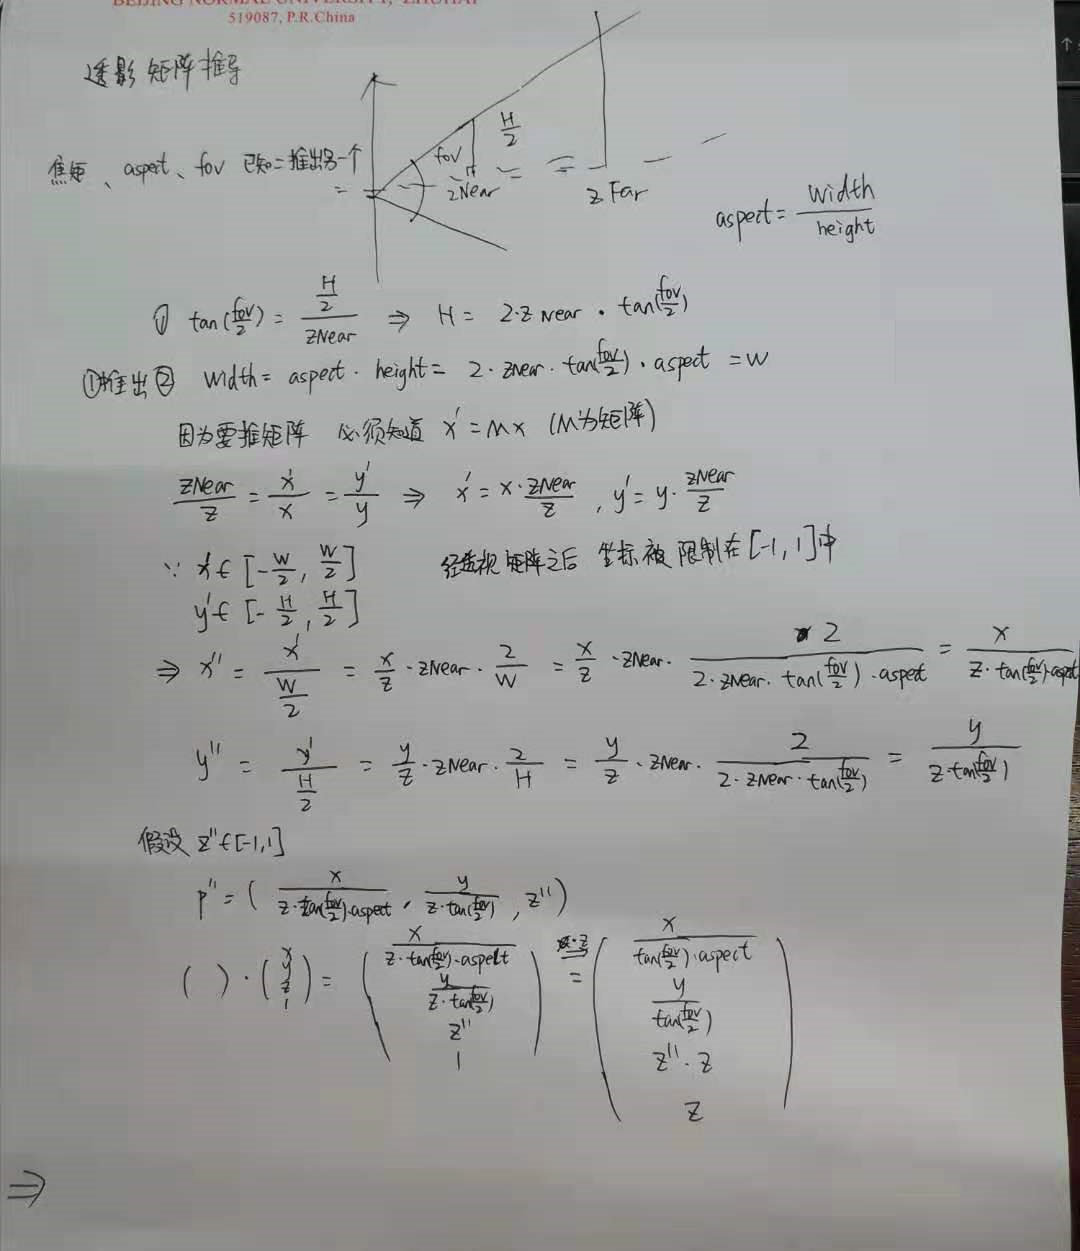 BEIJING NORMAL UNIVERSITY, ZHUHAI
519087, P.R.China
透影矩阵推导
焦矩、aspect、fov 已知二推出另一个
fov
H/2
zNear
zFar
aspect = width/height
① tan(fov/2) = (H/2)/zNear ⇒ H = 2·zNear · tan(fov/2)
①推出② width = aspect · height = 2 · zNear · tan(fov/2) · aspect = W
因为要推矩阵 必须知道 x' = Mx (M为矩阵)
zNear/z = x'/x = y'/y ⇒ x' = x · zNear/z , y' = y · zNear/z
∵ x' ∈ [-W/2, W/2] 经透视矩阵之后 坐标被限制在[-1,1]中
y' ∈ [-H/2, H/2]
⇒ x'' = x'/(W/2) = x/z · zNear · 2/W = x/z · zNear · 2/(2·zNear·tan(fov/2)·aspect) = x/(z·tan(fov/2)·aspect)
y'' = y'/(H/2) = y/z · zNear · 2/H = y/z · zNear · 2/(2·zNear·tan(fov/2)) = y/(z·tan(fov/2))
假设 z'' ∈ [-1,1]
p'' = ( x/(z·tan(fov/2)·aspect) , y/(z·tan(fov/2)) , z'' )
( ) · (x y z 1) = ( x/(z·tan(fov/2)·aspect) y/(z·tan(fov/2)) z'' 1 ) ·z = ( x/(tan(fov/2)·aspect) y/tan(fov/2) z''·z z )
⇒